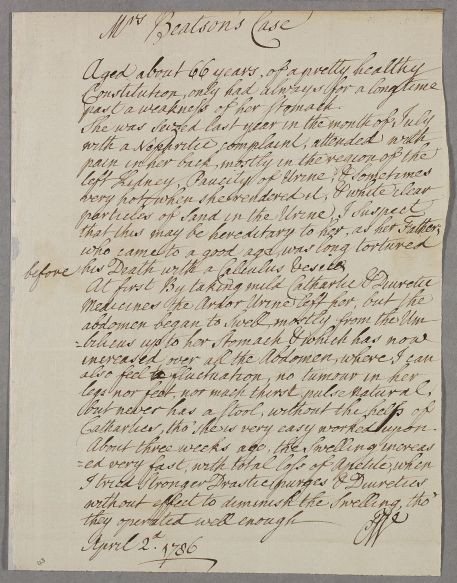 Mrs Beatson's Case
Aged about 66 years, of a pretty healthy
Constitution, only had always for a long time
past a weakness of her stomach.
She was Seized last year in the month of July
with a Nephritic complaint, attended with
pain in her back, mostly in the region of the
left Kidney, Paucity of Urine, & sometimes
very hot when she rendered it, & white clear
particles of Sand in the Urine, I Suspect
that this may be hereditary to her, as her Father,
who came to a good age, was long tortured
before his Death with a Calculus Vesicæ
At first By taking mild Cathartic & Diuretic
Medicines the Ardor Urine left her, but the
abdomen began to Swell, mostly from the Um
=bilicus up to her Stomach & which has now
increased over all the Abdomen, where I can
also feel a fluctuation, no tumour in her
legs nor feet, nor much thirst, pulse natural,
but never has a Stool, without the help of
Cathartics, tho' she is very easy worked upon.
About three weeks ago, the Swelling increas
=ed very fast, with total loss of Appetite, when
I tried Stronger Drastic purges & Diuretics
without effect to diminish the Swelling, tho'
they operated well enough
April 2d 1786